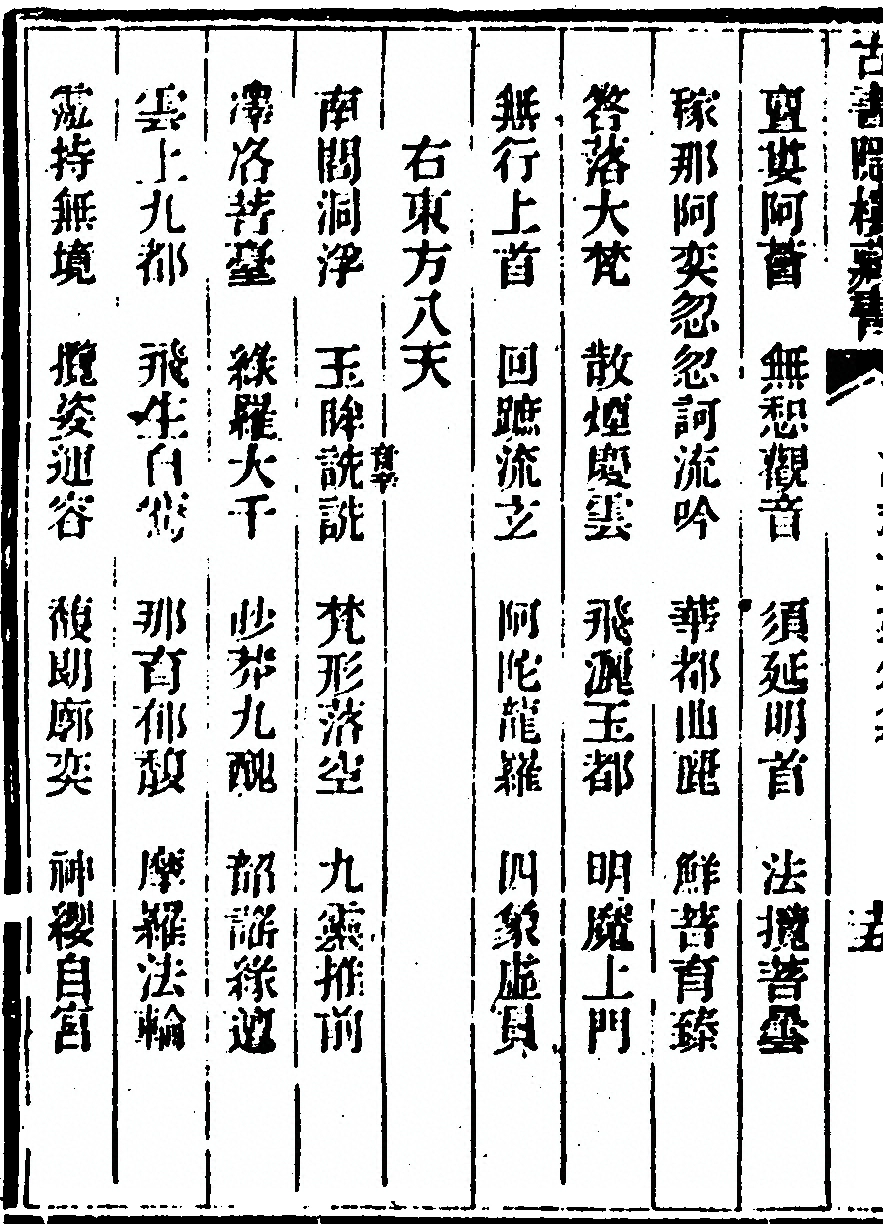 古書隱樓藏書
亶婁阿薈　無惒觀音　須延明首　法攬菩曇
稼那阿奕忽忽訶流吟　華都曲麗　鮮菩育臻
答落大梵　散煙慶雲　飛灑玉都　明魔上門
無行上首　回蹠流玄　阿陀龍羅　四象虛員
右東方八天
南閻洞浮　玉眸詵音莘詵　梵形落空　九靈推前
澤洛菩臺　綠羅大千　眇莽九醜　韶謠緣邅
雲上九都　飛生自騫　那育郁馥　摩羅法輪
霐持無境　攬姿運容　馥朗廓奕　神纓自宮